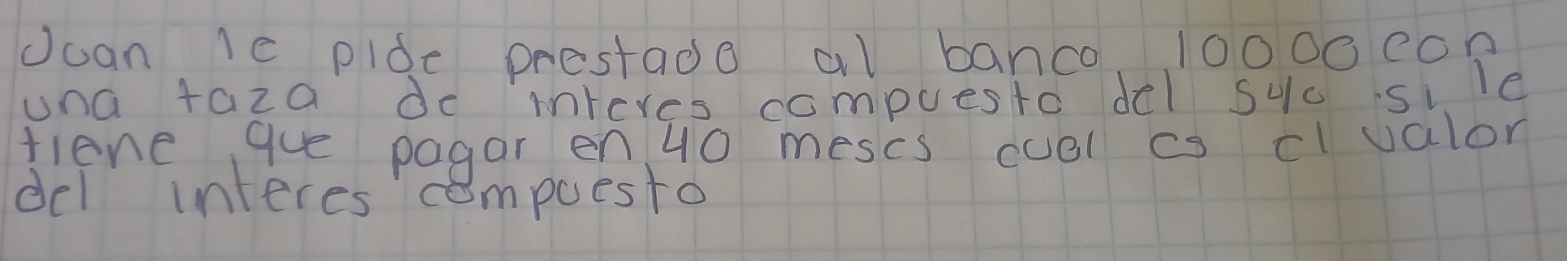 Juan le pide prestado al banco 10000 con
una taza de interes compuesto del 5% si le
tiene que pagar en 40 meses cual es el valor
del interes compuesto